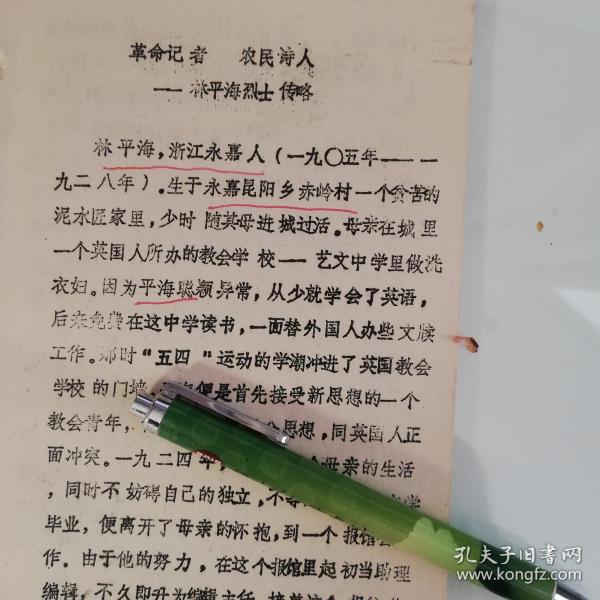 革命记者 农民诗人
——林平海烈士传略
林平海，浙江永嘉人（一九〇五年——一
九二八年）。生于永嘉昆阳乡赤岭村一个贫苦的
泥水匠家里，少时随其母进城过活。母亲在城里
一个英国人所办的教会学校——艺文中学里做洗
衣妇。因为平海聪颖异常，从少就学会了英语，
后来免费在这中学读书，一面替外国人办些文牍
工作。那时“五四”运动的学潮冲进了英国教会
学校的门墙，便是首先接受新思想的一个
教会青年，思想，同英国人正
面冲突。一九二四年，母亲的生活
，同时不妨碍自己的独立，不等
毕业，便离开了母亲的怀抱，到一个报馆
作。由于他的努力，在这个报馆里起初当助理
编辑，不久即升为编辑主任
孔夫子旧书网
www.kongfz.com